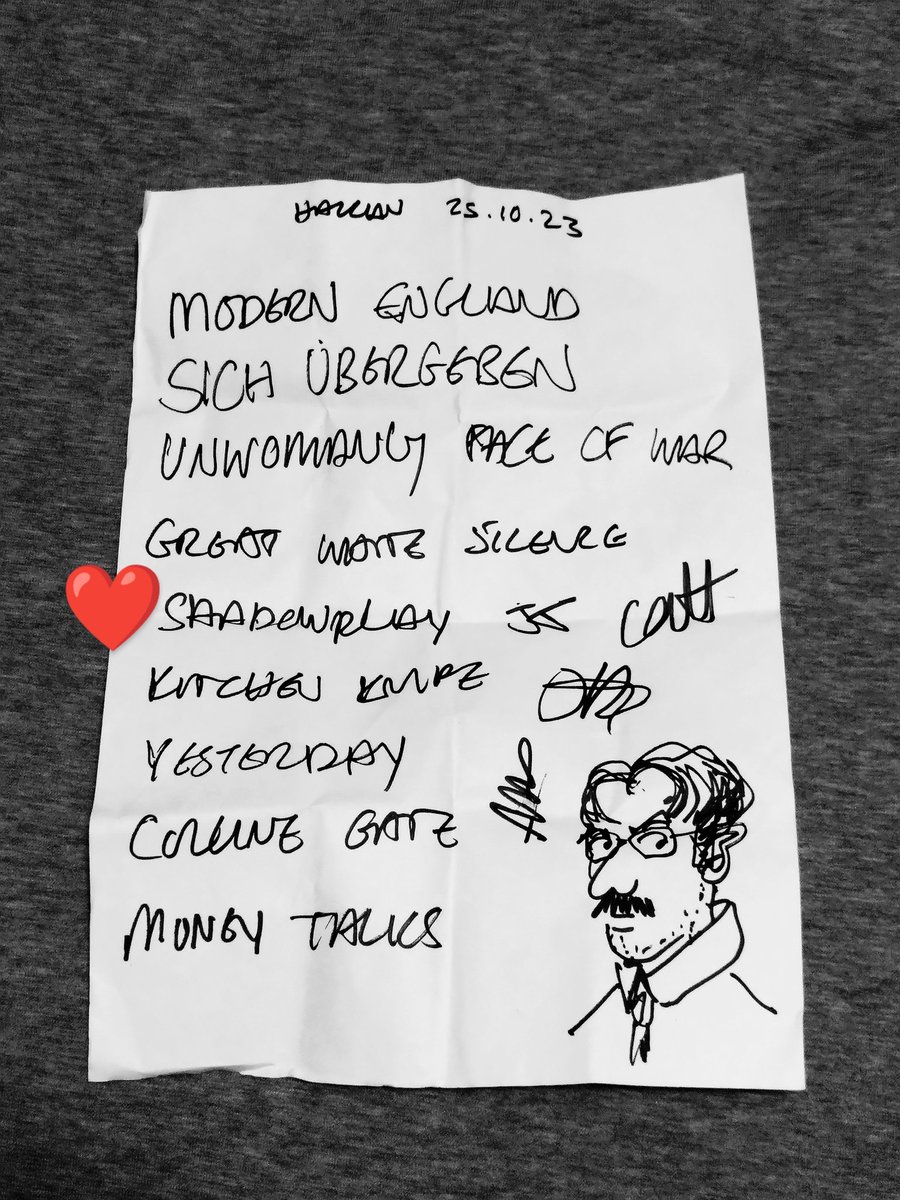 25.10.23
MODERN ENGLAND
SICH ÜBERGEBEN
UNWOMANLY FACE OF WAR
GREAT WHITE SILENCE
SHADOWPLAY JS
KITCHEN KNIFE
YESTERDAY
COLLINE GATE
MONEY TALKS